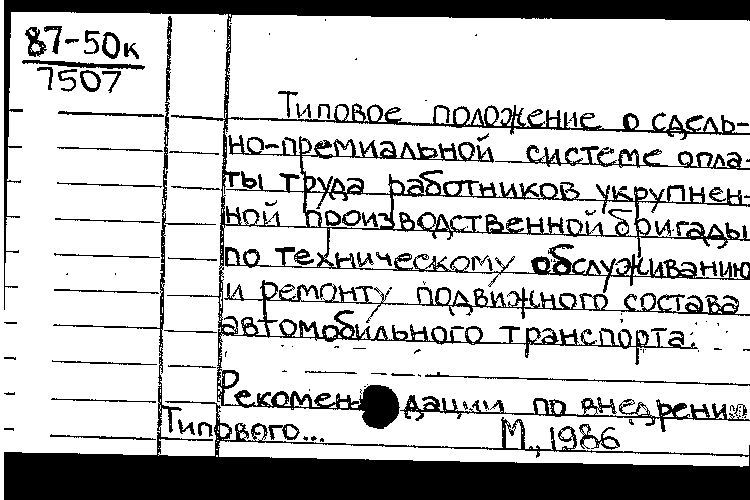 87-50к
7507
Типовое положение о сдель-
но-премиальной системе опла-
ты труда работников укрупнен-
ной производственной бригады
по техническому обслуживанию
и ремонту подвижного состава
автомобильного транспорта.
Рекомендации по внедрению
Типового... М., 1986